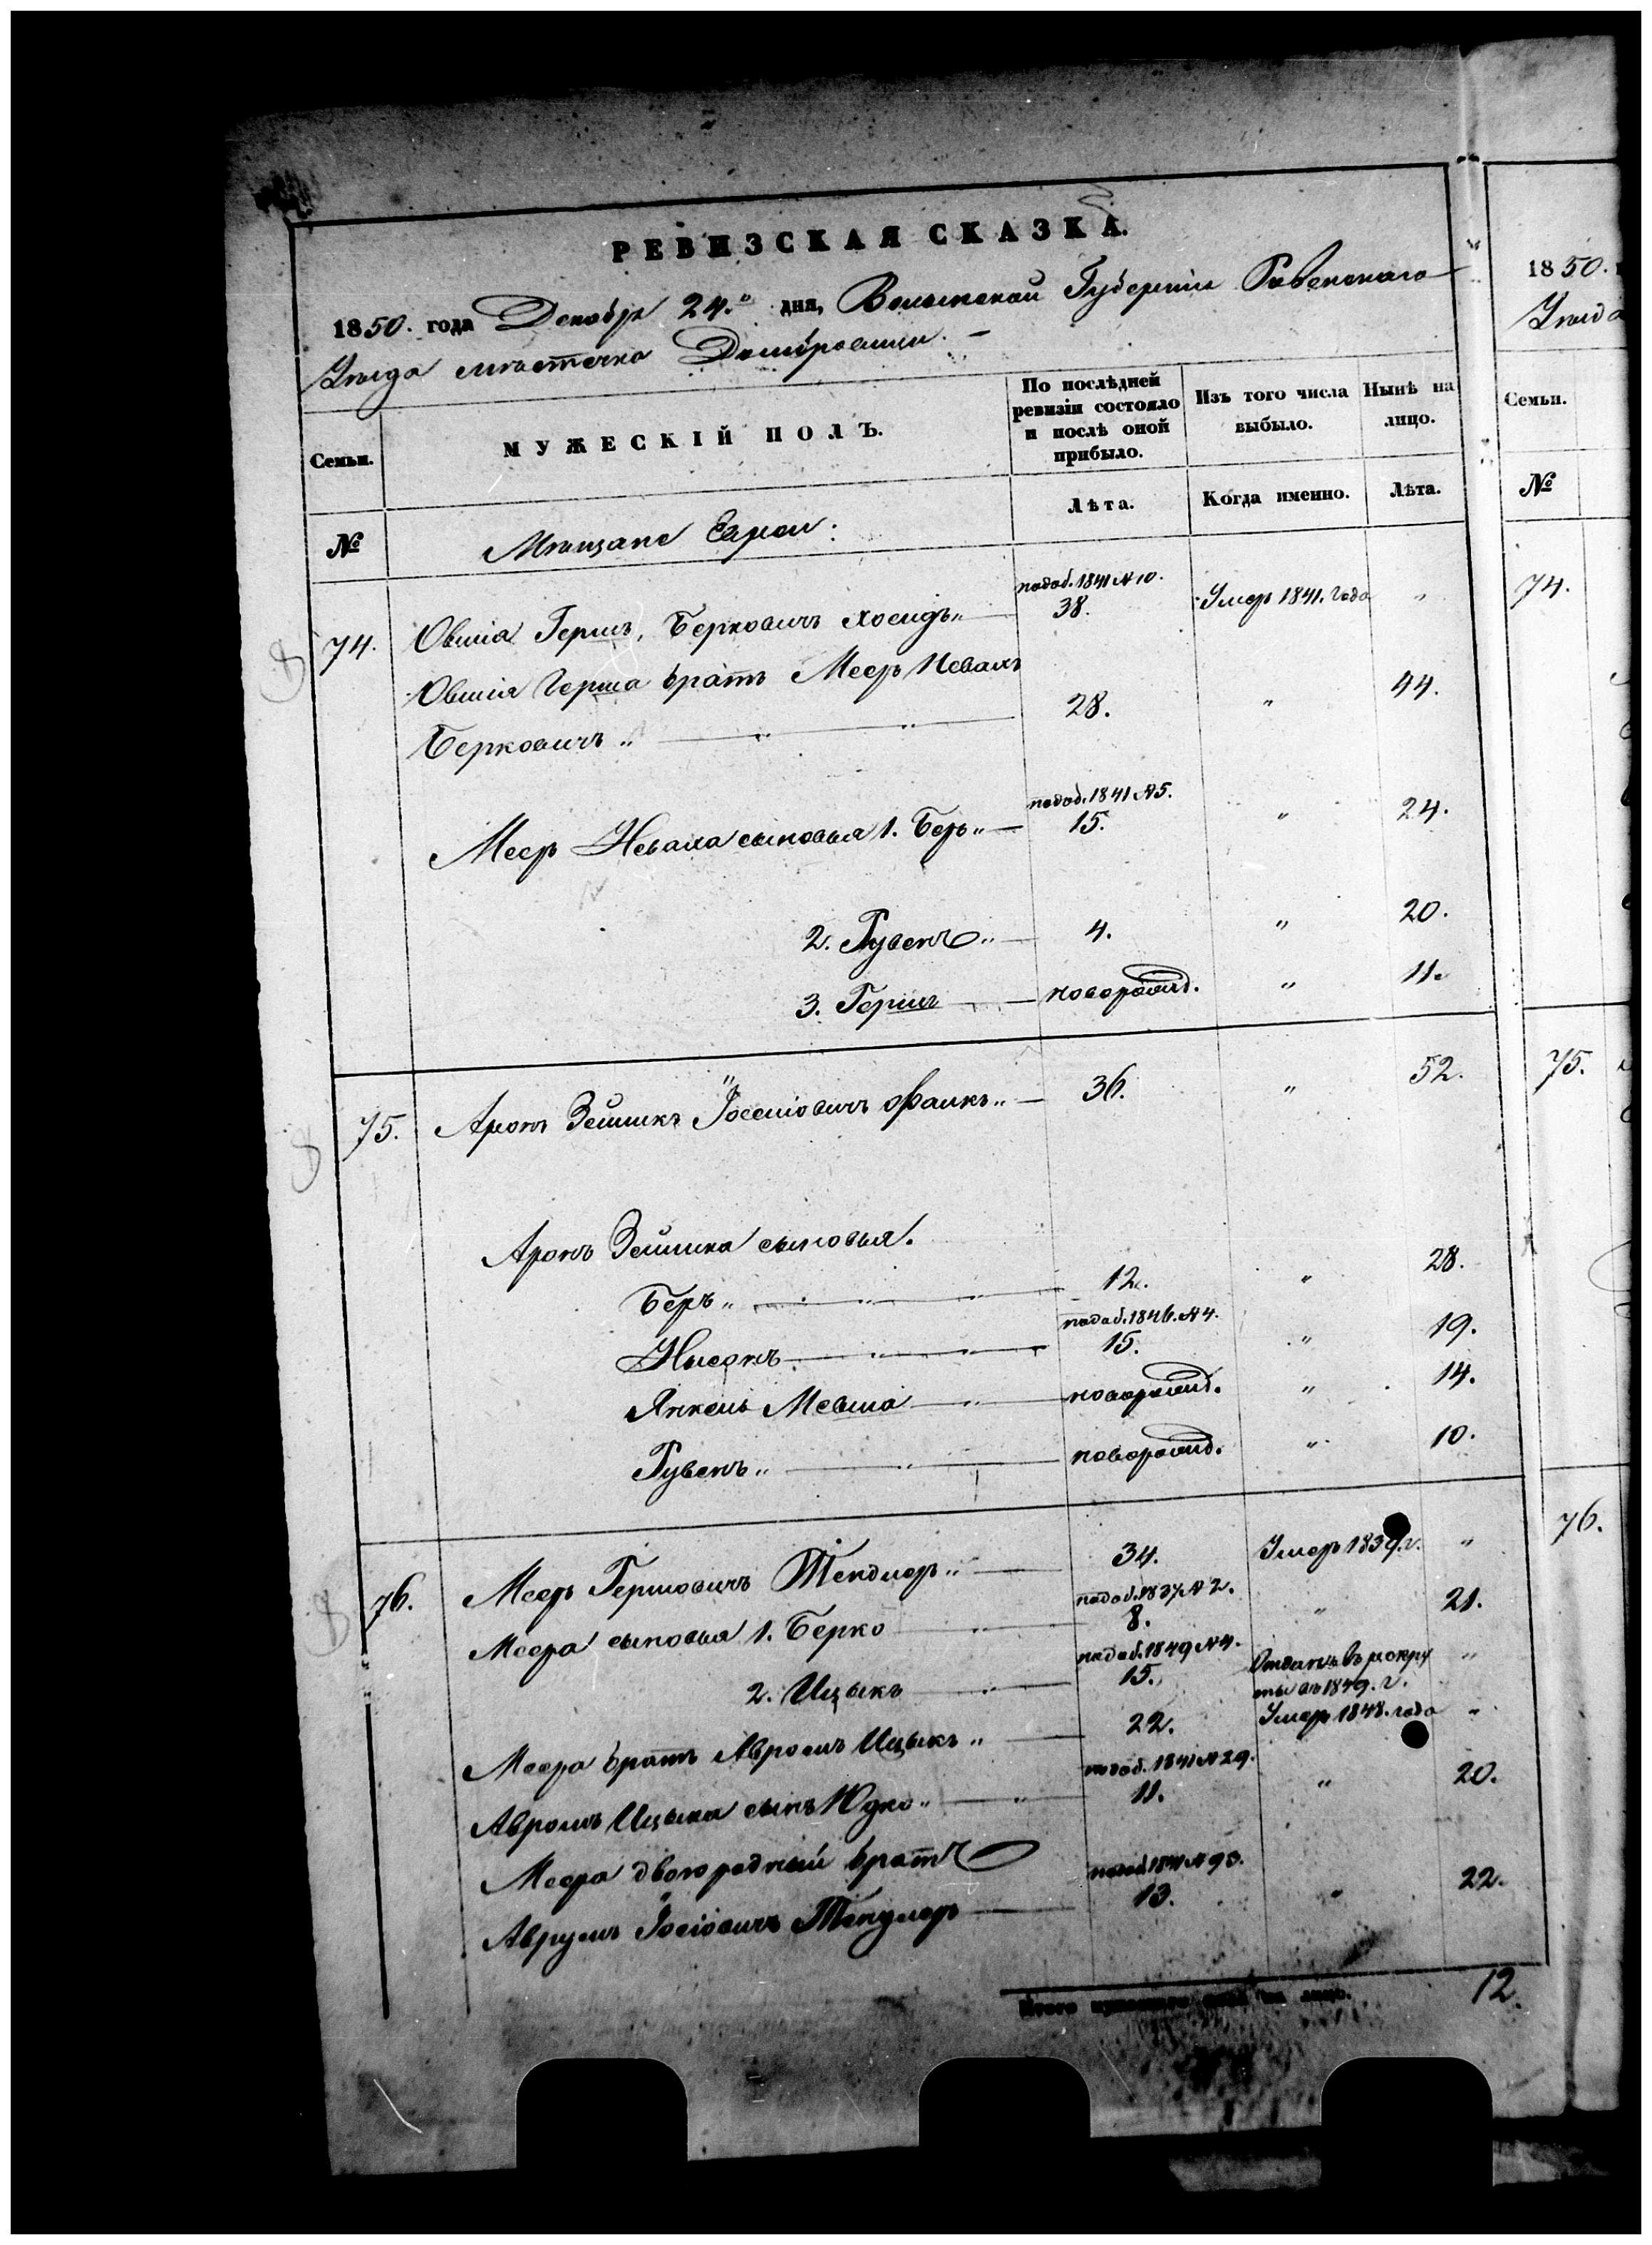 РЕВИЗСКАЯ СКАЗКА.
1850. года Декабря 24.го дня, Волынской Губерніи Ровенского
Уѣзда мѣстечка Домбровицы. –
Семьи.
МУЖЕСКІЙ ПОЛЪ.
По послѣдней ревизіи состояло и послѣ оной прибыло.
Изъ того числа выбыло.
Нынѣ на лицо.
№
Лѣта.
Когда именно.
Лѣта.
Мѣщане Евреи:
подоб. 1841 № 10.
74. Овшія Гершъ, Берковичъ Хосидъ „ 38. Умеръ 1841. года „
Овшія Герша братъ Меер Невахъ
Берковичъ „ 28. „ 44.
подоб. 1841 № 5.
Меер Неваха сыновья 1. Беръ „ 15. „ 24.
2. Рувенъ „ 4. „ 20.
3. Гершъ новорожд. „ 11.
75. Аронъ Зейликъ Іосіовичъ Фалкъ „ 36. „ 52.
Аронъ Зейлика сыновья.
Беръ „ 12. „ 28.
подоб. 1846. № 4.
Нисонъ 15. „ 19.
Янкель Мевша новорожд. „ 14.
Рувенъ „ новорожд. „ 10.
76. Меер Гершовичъ Тендлеръ „ 34. Умеръ 1839. г. „
подоб. 1837 № 2.
Меера сыновья 1. Берко 8. „ 21.
подоб. 1849 № 4.
2. Ицыкъ 15. Отданъ въ рекру
ты въ 1849. г. „
Меера братъ Авромъ Ицыкъ „ 22. Умеръ 1848. года „
подоб. 1841 № 29.
Авромъ Ицыка сынъ Юдко „ 11. „ 20.
Меера двоюродный братъ
подоб. 1841 № 90.
Аврумъ Іосіовичъ Тендлеръ 13. „ 22.
Итого мужескаго пола на лицо. 12.
1850.
Уѣзда
Семьи.
№
74.
75.
76.